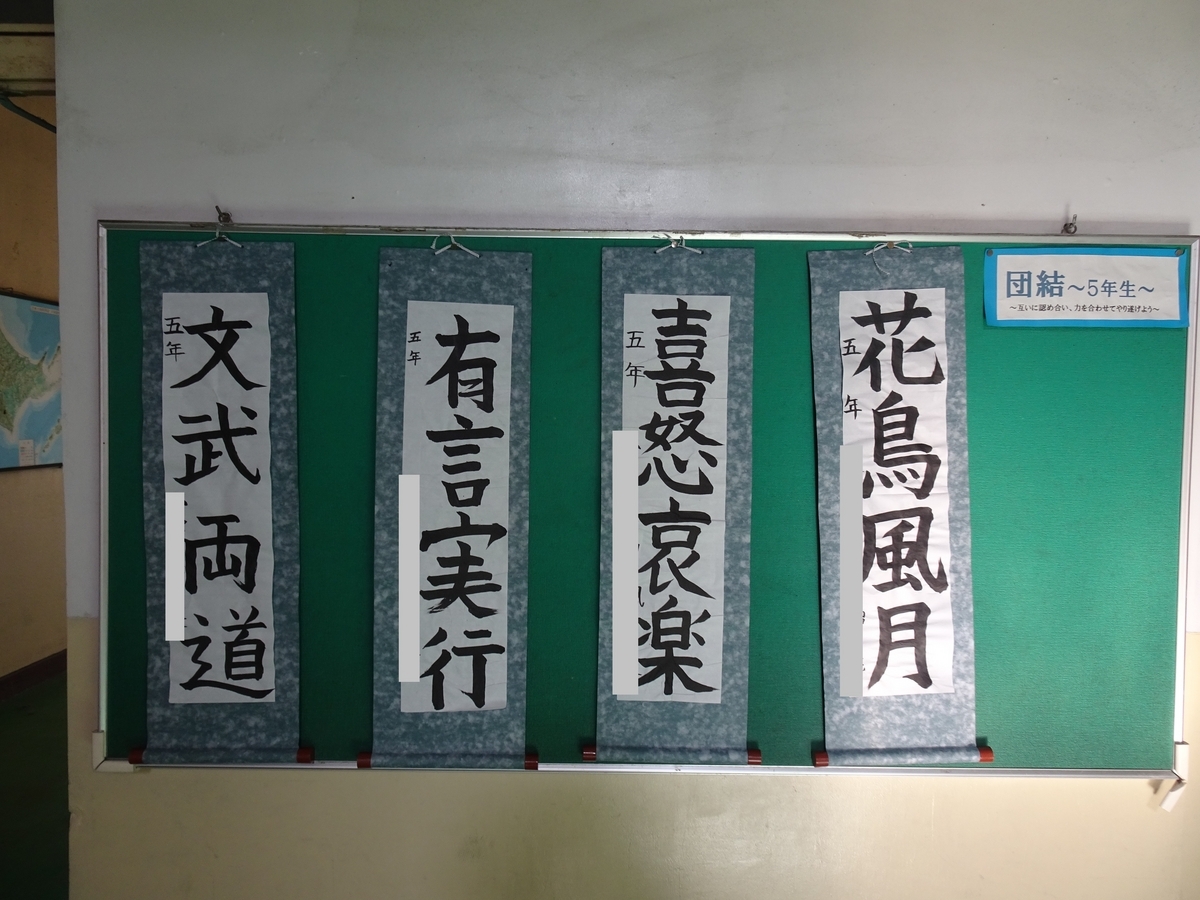 団結～5年生～
～互いに認め合い、力を合わせてやり遂げよう～
花鳥風月
五年
喜怒哀楽
五年
有言実行
五年
文武両道
五年